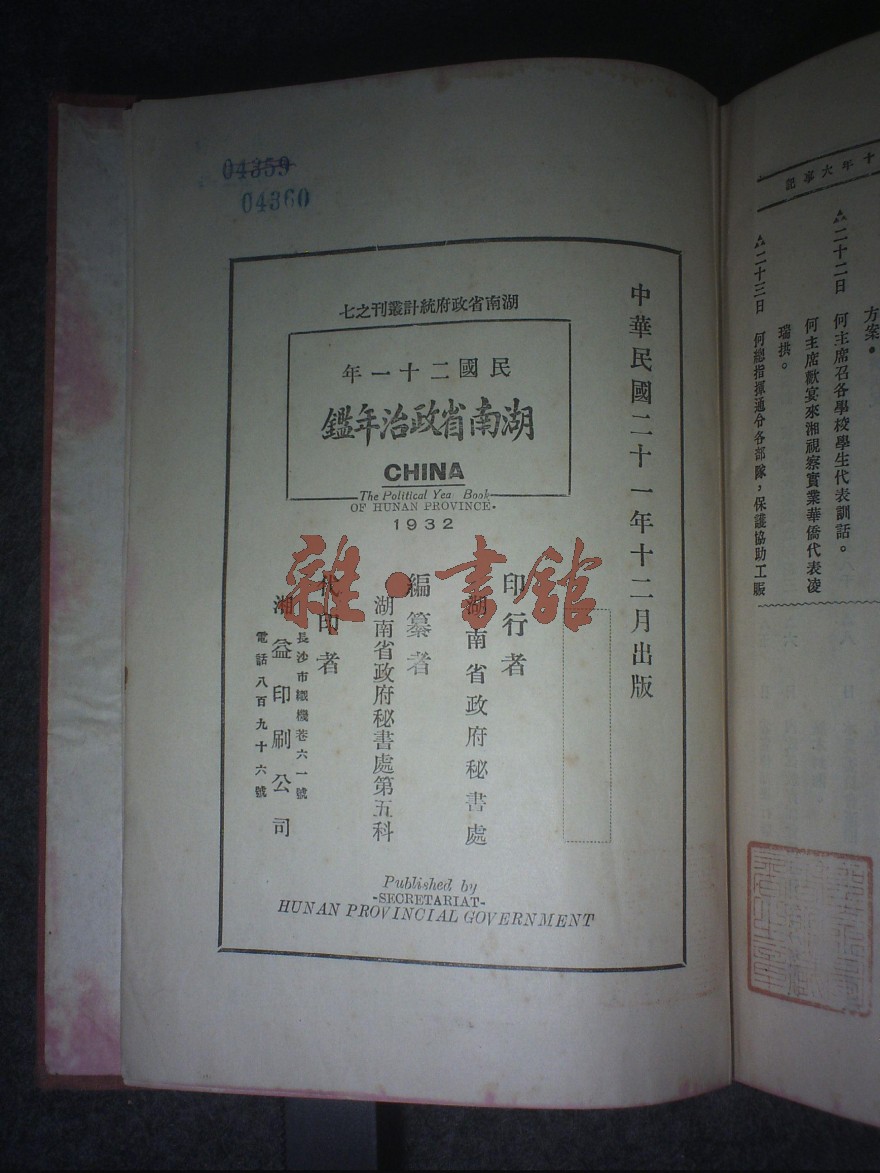 04359
04360
中華民國二十一年十二月出版
湖南省政府統計叢刊之七
民國二十一年
湖南省政治年鑑
CHINA
The Political Yea Book
OF HUNAN PROVINCE.
1932
印行者
湖南省政府秘書處
編纂者
湖南省政府秘書處第五科
代印者
長沙市緞機巷六一號
湘益印刷公司
電話八百九十六號
Published by
-SECRETARIAT-
HUNAN PROVINCIAL GOVERNMENT
雜·書館
十年大事記
方案。
▵▵二十二日 何主席召各學校學生代表訓話。
何主席歡宴來湘視察實業華僑代表凌
瑞拱。
▵▵二十三日 何總指揮通令各部隊，保護協助工賑